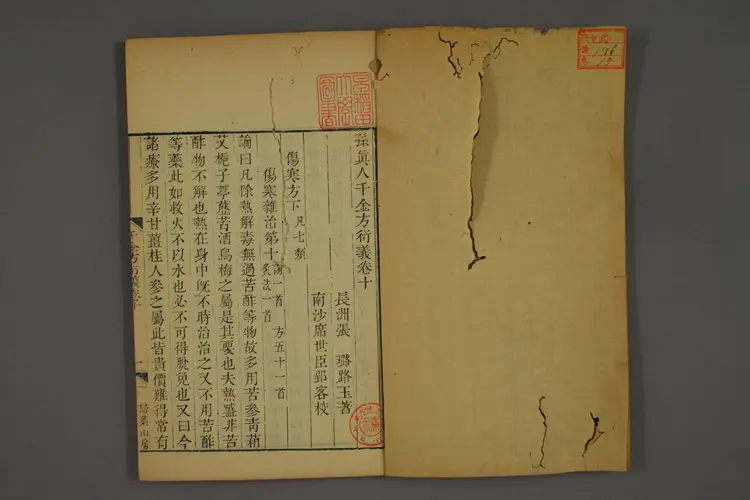 孫真人千金方衍義卷十
長洲張 璐路玉著
南沙席世臣郢客校
傷寒方下 凡七類
傷寒雜治第十 論一首 方五十一首 灸法一首
論曰凡除熱解毒無過苦酢等物故多用苦參青葙
艾梔子葶藶苦酒烏梅之屬是其要也夫熱盛非苦
酢物不解也熱在身中旣不時治治之又不用苦酢
等藥此如救火不以水也必不可得脫免也又曰今
諸療多用辛甘薑桂人參之屬此皆貴價難得常有
千金方衍義卷十
一
掃葉山房
早稻田大學圖書
176
15